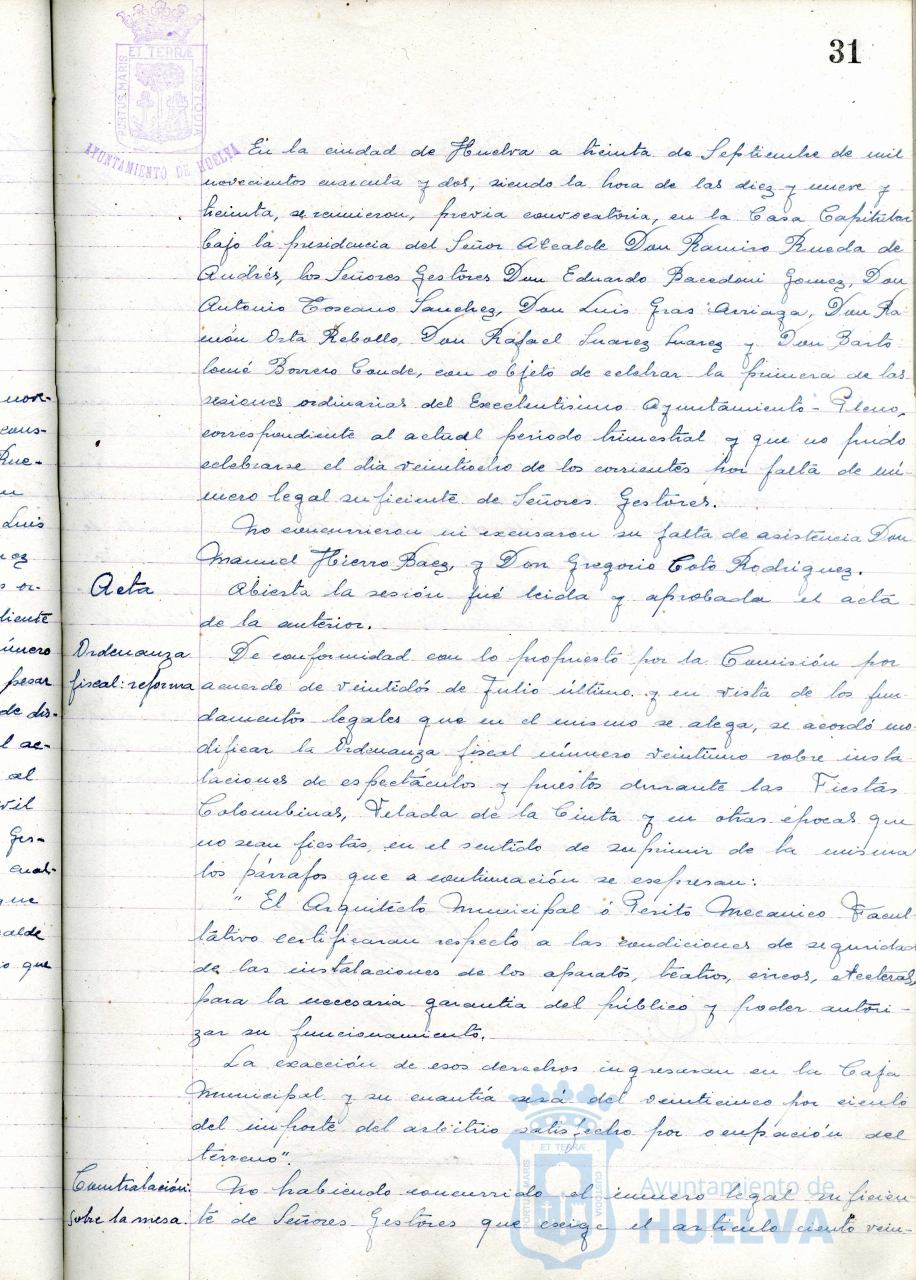 31
PORTUS MARIS ET TERRÆ CUSTODIA
AYUNTAMIENTO DE HUELVA
En la ciudad de Huelva a treinta de Septiembre de mil
novecientos cuarenta y dos, siendo la hora de las diez y nueve y
treinta, se reunieron, previa convocatoria, en la Casa Capitular
bajo la presidencia del Señor Alcalde Don Ramiro Rueda de
Andrés, los Señores Gestores Don Eduardo Bacedoni Gomez, Don
Antonio Toscano Sanchez, Don Luis Gras Arriaga, Don Ra
món Orta Rebollo, Don Rafael Suarez Suarez y Don Barto
lomé Borrero Conde, con objeto de celebrar la primera de las
sesiones ordinarias del Excelentisimo Ayuntamiento-Pleno,
correspondiente al actual periodo trimestral y que no pudo
celebrarse el dia veintiocho de los corrientes por falta de nú
mero legal suficiente de Señores Gestores.
No concurrieron ni excusaron su falta de asistencia Don
Manuel Hierro Baez, y Don Gregorio Coto Rodriguez.
Acta
Abierta la sesión fué leida y aprobada el acta
de la anterior.
Ordenanza
fiscal: reforma
De conformidad con lo propuesto por la Comisión por
acuerdo de veintidós de Julio último y en vista de los fun
damentos legales que en el mismo se alega, se acordó mo
dificar la Ordenanza fiscal número veintiuno sobre insta
laciones de espectáculos y puestos durante las Fiestas
Colombinas, Velada de la Cinta y en otras épocas que
no sean fiestas, en el sentido de suprimir de la misma
los párrafos que a continuación se expresan:
" El Arquitecto Municipal o Perito Mecanico Facul
tativo certificaran respecto a las condiciones de seguridad
de las instalaciones de los aparatos, teatros, circos, etceteras,
para la necesaria garantia del público y poder autori-
zar su funcionamiento.
La exacción de esos derechos ingresaran en la Caja
Municipal y su cuantia será del veinticinco por ciento
del importe del arbitrio satisfecho por ocupación del
terreno".
Contratación:
sobre la mesa.
No habiendo concurrido el número legal suficien
te de Señores Gestores que exige el articulo ciento vein-
nor-
cons-
Rue-
Luis
diente
número
pesar
de dis-
l ac-
al
vil
Ges-
cual-
que
calde
o que
ET TERRÆ
PORTUS MARIS
CUSTODIA
Ayuntamiento de
HUELVA